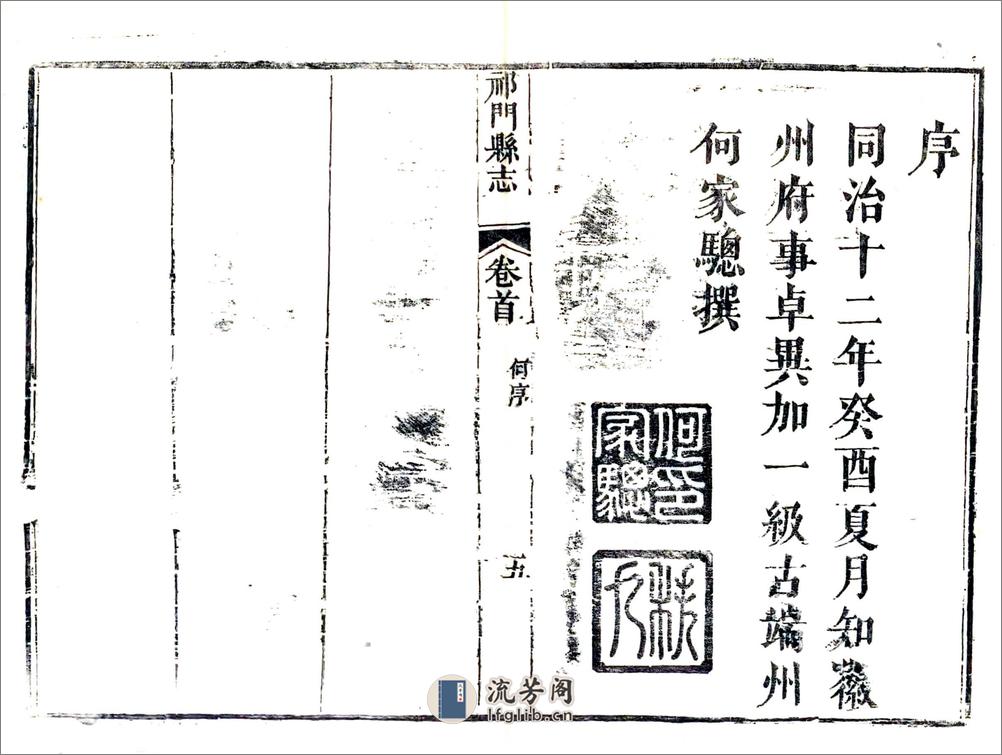 序
同治十二年癸酉夏月知徽
州府事卓異加一級古端州
何家驄撰
何印家驄
祁門縣志
卷首
何序
五
流芳阁
lfglib.cn